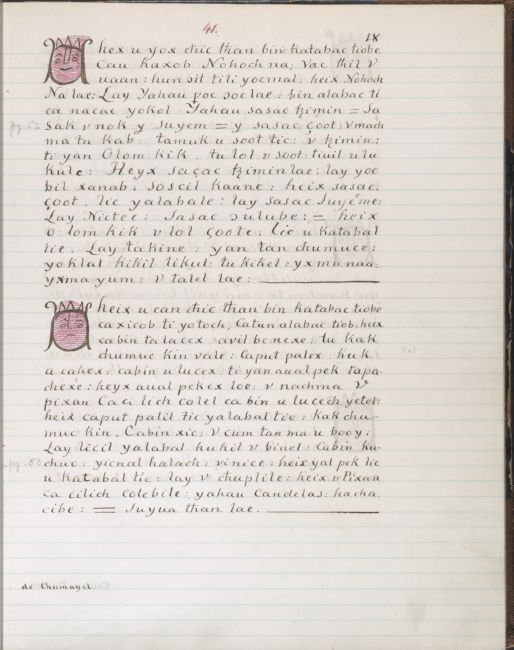 41.
18
hex u yox chic than bin katabac tiobe.
Cau kaxob Nohoch na; Vac thil v
uaan: hun sit tili yocmal: heix Nohoch
Na lae: Lay Yahau poc ɔoc lae: bin alabac ti
ca nacac yokol Yahau sasac tzimin = Sa
pg. 52
sak v nok y suyem = y sasac çoot: v mach
ma tu kab: tamuk u soot tic: v tzimin:
ti yan Olom kik. tu lol v soot: tiuil u lu
kule: Heyx saçac tzimin lae: lay yoc
bil xanab: soscil kaane: heix sasac.
çoot. lic yalabale: lay sasac Suyême:
Lay Nictee: Sasac ɔulube: = heix
o lom kik v lol çoote: lic u katabal
tie. Lay takine: yan tan chumuce:
yoklal kikil likul: tu kikel: yxmanaa:
yxma yum: v talel lae:
heix u can chic than bin katabac tiobe
ca xicob ti yotoch, Catun alabac tiob. heix
ca bin talacex avil benexe: tu kak
chumuc kin vale: Caput palex: huk
a cahex: cabin u lucex ti yan aual pek tapa-
chexe: heyx aual pekex loe: v nachma v
pixan Ca ci lich colel ca bin u lucech yetel:
heix caput palil tic yalabal tie: kak chu-
muc kin. Cabin xic: v cum tan ma u booy:
Lay licil yalabal hukil v binel: Cabin ku-
pg. 53
chuc: yicnal halach: vinice: heix yal pek lic
u katabal tie: lay v chuplile: heix v Pixan
ca cilich colebile: yahau Candelas: hacha.
cibe: = Suyua than lae.
de Chumayel